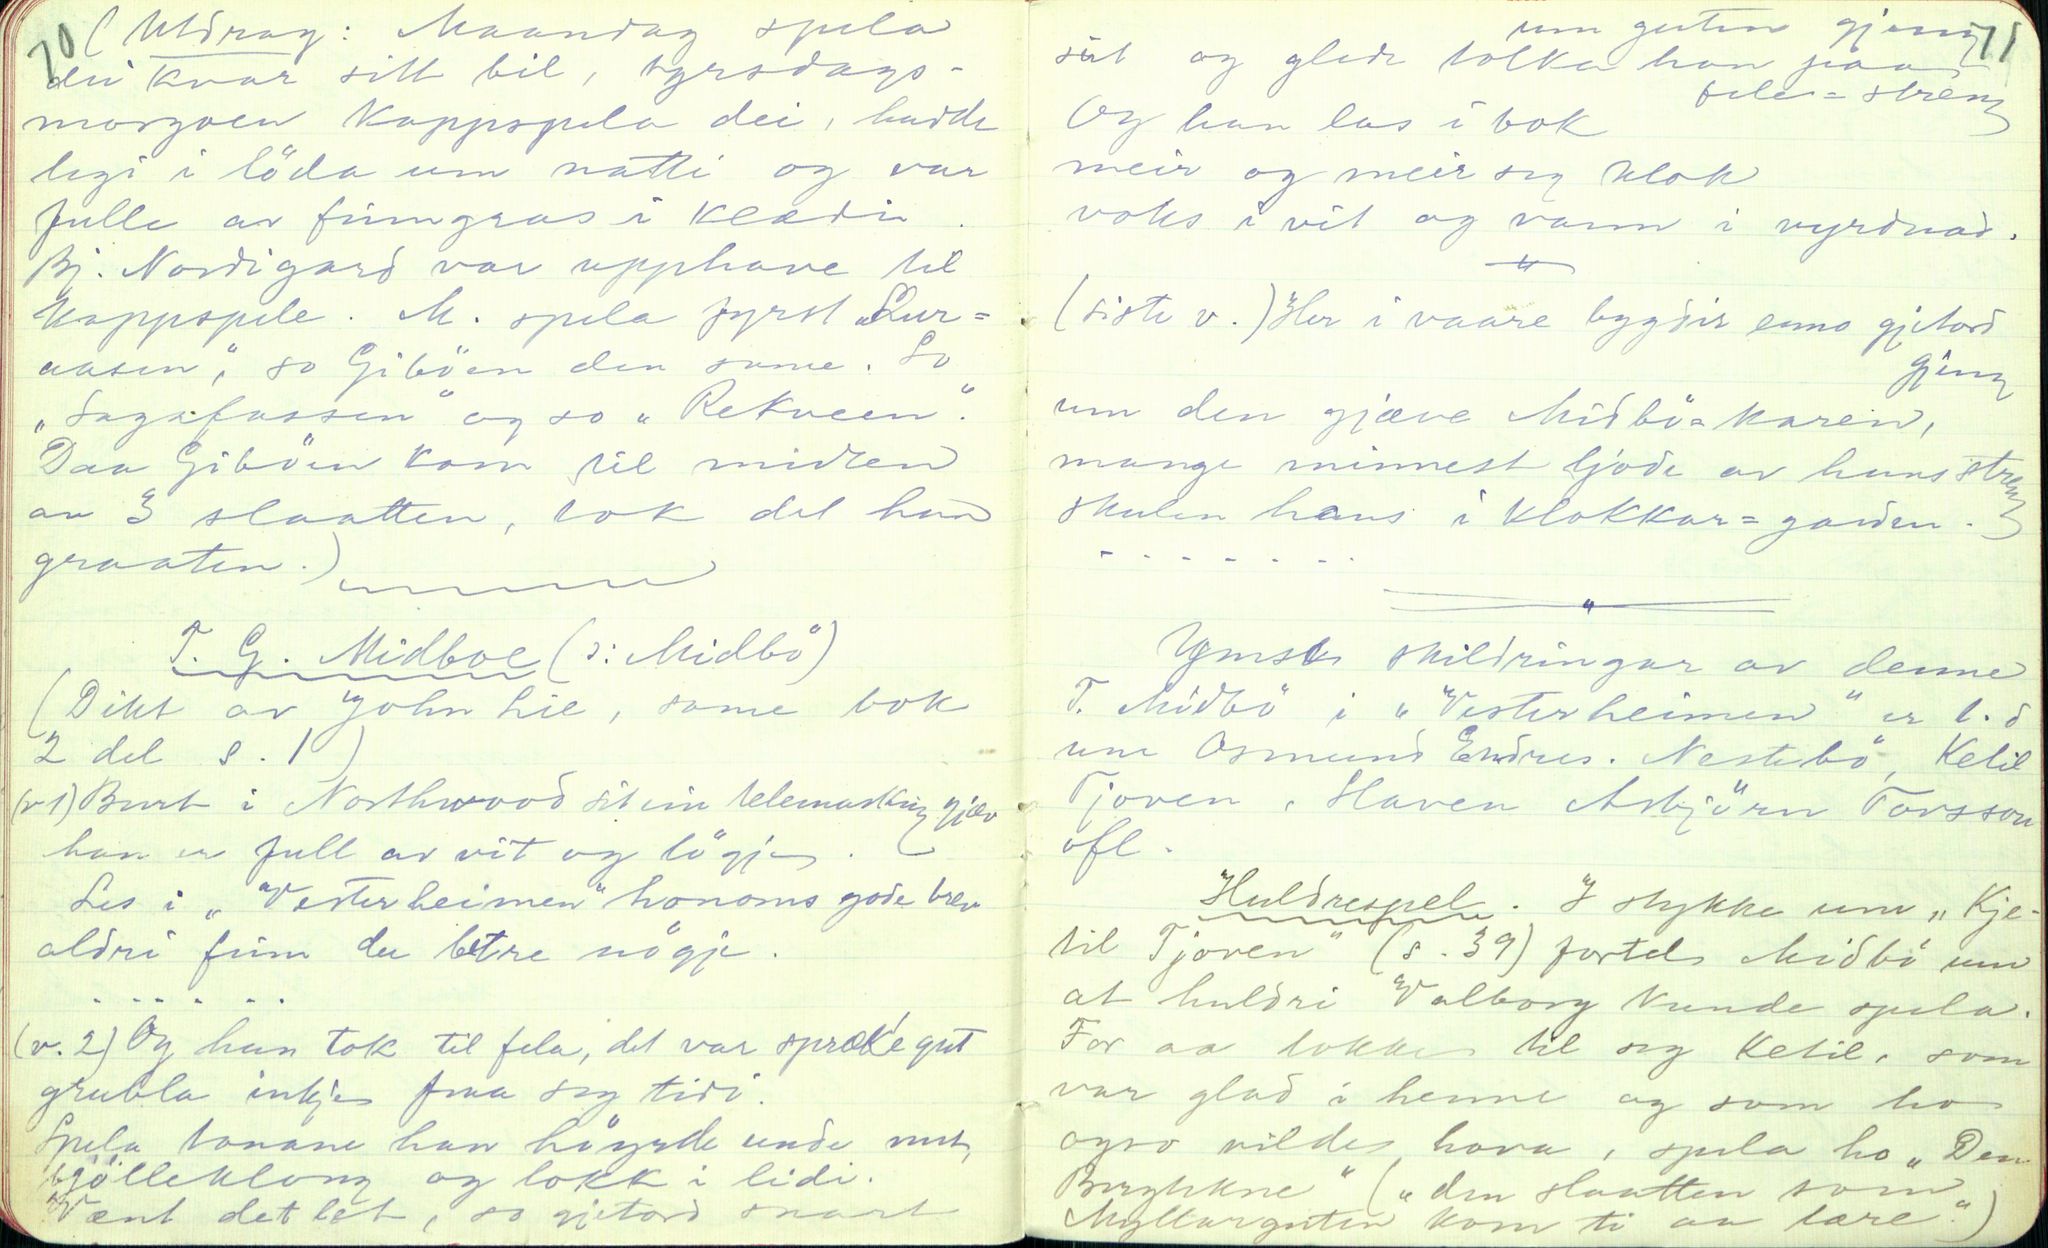 70
(Utdrag: Maandag spela
dei kvar sitt bil, tyrsdags-
morgoen kappspela dei, hadde
legi i löda um natti og var
fulle av fimgras i klædi.
Bj. Nordigard var upphave til
kappspele. M. spela fyrst „Lur=
aasen“, so Giböen den same. So
„Sagafossen“ og so „Rekveen“.
Daa Giböen kom til midten
av 3 slaatten, tok det han
graaten.)
T. G. Midboe (ɔ: Midbö)
(Dikt av John Lie, same bok
2 del s. 1)
(v 1) Burt i Northwood sit ein telemarking gjæv
han er full av vit og lögje.
Les i „Vesterheimen“ honoms gode brev
aldri finn du betre nögje.
. . . . . .
(v. 2) Og han tok til fela, det var spræke gut
grubla inkje fraa seg tidi.
Spela tonane han höyrde unde nut,
bjölleklong og lokk i lidi.
Vænt det let, so gjetord snart
71
um guten gjeng
sút og glede tolka han paa
fele=streng
Og han las i bok
meir og meir seg klok
voks i vit og vann i vyrdnad.
(siste v.) Her i vaare bygdir enno gjetord
gjeng
um den gjæve Midbö=karen,
mange minnest ljode av hans streng
skulen hans i klokkar=garden.
. . . . . . .
Ymse skildringar av denne
T. Midbö i „Vesterheimen“ er t. d
um Osmund Endres. Nestebö, Ketil
Tjoven, Slaven Asbjörn Torsson
ofl.
Huldrespel. I stykke um „Kje-
til Tjoven“ (s. 39) fortel Midbö um
at huldri Valborg kunde spela.
For aa lokke til seg Ketil, som
var glad i henne og som ho
ogso vilde hava, spela ho „Den
Bergtekne“ („den slaatten som
Myllarguten kom ti aa lære“.)